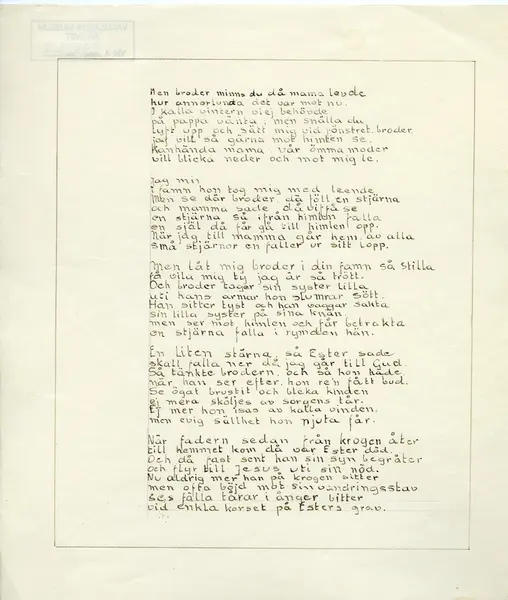 Men broder minns du då mama levde
hur annorlunda det var mot nu.
I kalla vintern vi ej behövde
på pappa vänta, men snälla du
lyft upp och sätt mig vid fönstret broder
jag vill så gärna mot himlen se.
Kanhända mama, vår ömma moder
vill blicka neder och mot mig le.
Jag min
i famn hon tog mig med leende
Men se där broder, då föll en stjärna
och mamma sade, då vi få se
en stjärna så ifrån himlen falla
en själ då får gå till himlen opp.
När jag till mamma går hem av alla
små stjärnor en faller ur sitt lopp.
Men låt mig broder i din famn så stilla
få vila mig ty jag är så trött.
Och broder tager sin syster lilla
uti hans armar hon slumrar sött.
Han sitter tyst och han vaggar sakta
sin lilla syster på sina knän.
men ser mot himlen och får betrakta
en stjärna falla i rymden hän.
En liten stärna, så Ester sade
skall falla ner då jag går till Gud.
Så tänkte brodern, och så hon hade
när han ser efter, hon re'n fått bud.
Se ögat brustit och bleka kinden
ej mera sköljes av sorgens tår.
Ej mer hon isas av kalla vinden,
men evig sällhet hon njuta får.
När fadern sedan från krogen åter
till hemmet kom då var Ester död.
Och då fast sent han sin syn begråter
och flyr till Jesus uti sin nöd.
Nu aldrig mer han på krogen sitter
men ofta böjd mot sin vandringsstav
ses fälla tårar i ånger bitter
vid enkla korset på Esters grav.